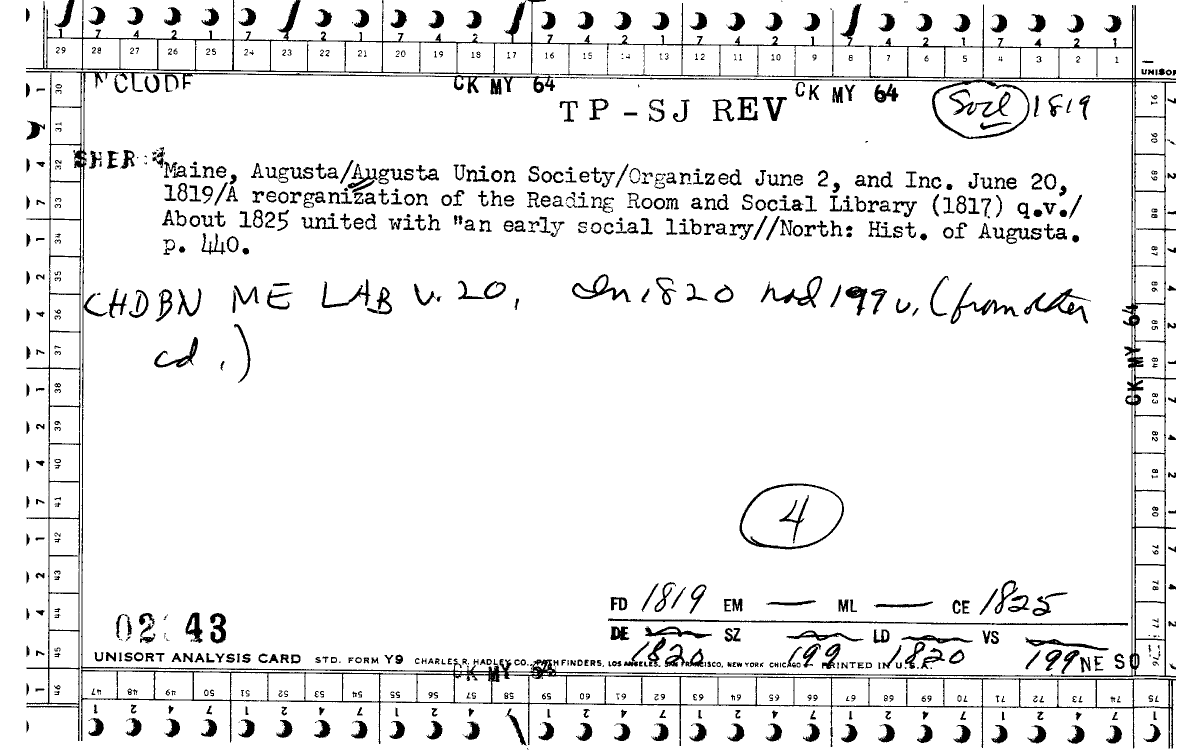 7 4 2 1 7 4 2 1 7 4 2 1 7 4 2 1 7 4 2 1 7 4 2 1
29 28 27 26 25 24 23 22 21 20 19 18 17 16 15 14 13 12 11 10 9 8 7 6 5 4 3 2 1
UNISO
CK MY 64
CK MY 64
TP-SJ REV
Socl 1819
SHER
Maine, Augusta/Augusta Union Society/Organized June 2, and Inc. June 20,
1819/A reorganization of the Reading Room and Social Library (1817) q.v./
About 1825 united with "an early social library//North: Hist. of Augusta.
p. 440.
CHDBN ME LAB v. 20, In 1820 had 199 v. (from other
cd.)
CK MY 64
4
FD 1819 EM — ML — CE 1825
DE 1820 SZ 199 LD 1820 VS 199 NE SO
43
UNISORT ANALYSIS CARD STD. FORM Y9 CHARLES R. HADLEY CO., PATHFINDERS, LOS ANGELES, SAN FRANCISCO, NEW YORK CHICAGO PRINTED IN U.S.A.
CK MY 64
47 48 49 50 51 52 53 54 55 56 57 58 59 60 61 62 63 64 65 66 67 68 69 70 71 72 73 74 75